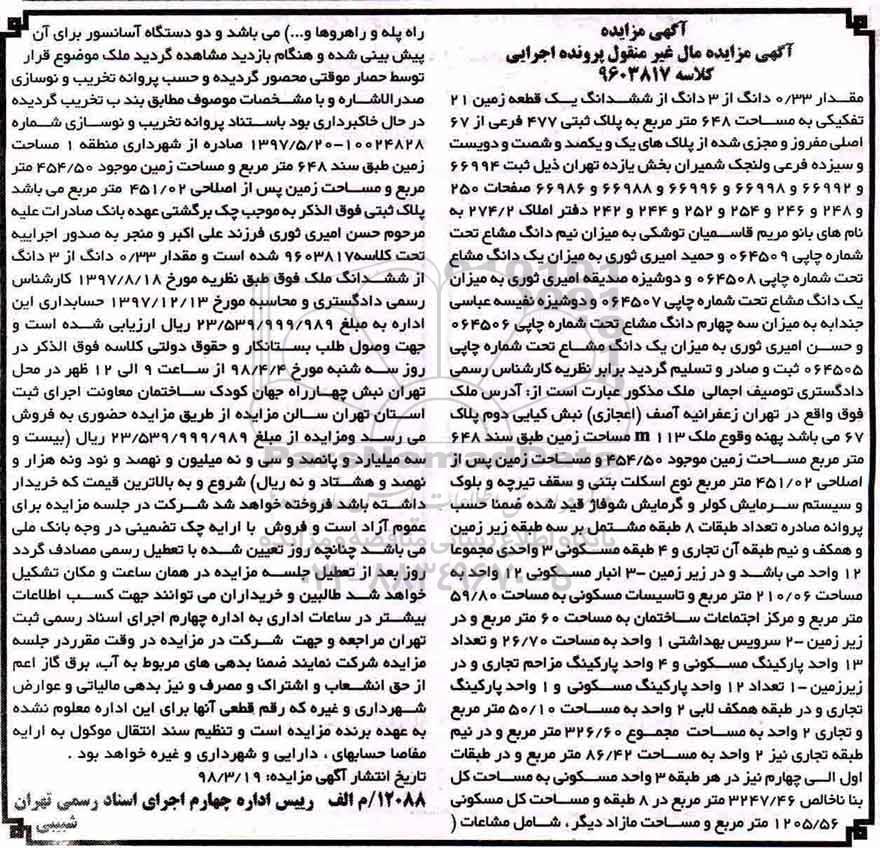 آگهی مزایده
آگهی مزایده مال غیر منقول پرونده اجرایی
کلاسه ۹۶۰۳۸۱۷
مقـدار ۰/۳۳ دانگ از ۳ دانگ از ششـدانگ یـک قطعه زمین ۲۱
تفکیکی به مسـاحت ۶۴۸ متر مربع به پلاک ثبتی ۴۷۷ فرعی از ۶۷
اصلی مفروز و مجزی شده از پلاک های یک و یکصد و شصت و دویست
و سیزده فرعی ولنجک شمیران بخش یازده تهران ذیل ثبت ۶۶۹۹۴
و ۶۶۹۹۲ و ۶۶۹۹۸ و ۶۶۹۹۶ و ۶۶۹۸۸ و ۶۶۹۸۶ صفحات ۲۵۰
و ۲۴۸ و ۲۴۶ و ۲۵۴ و ۲۵۲ و ۲۴۴ و ۲۴۲ دفتر املاک ۲۷۴/۲ به
نام های بانو مریم قاسـمیان توشکی به میزان نیم دانگ مشاع تحت
شماره چاپی ۰۶۴۵۰۹ و حمید امیری ثوری به میزان یک دانگ مشاع
تحت شماره چاپی ۰۶۴۵۰۸ و دوشیزه صدیقه امیری ثوری به میزان
یک دانگ مشاع تحت شماره چاپی ۰۶۴۵۰۷ و دوشیزه نفیسه عباسی
جندابه به میزان سه چهارم دانگ مشاع تحت شماره چاپی ۰۶۴۵۰۶
و حسـن امیری ثوری به میزان یک دانگ مشـاع تحت شماره چاپی
۰۶۴۵۰۵ ثبت و صادر و تسلیم گردید برابر نظریه کارشناس رسمی
دادگستری توصیف اجمالی ملک مذکور عبارت است از: آدرس ملک
فوق واقع در تهران زعفرانیه آصف (اعجازی) نبش کیایی دوم پلاک
۶۷ می باشد پهنه وقوع ملک m ۱۱۳ مساحت زمین طبق سند ۶۴۸
متر مربع مساحت زمین موجود ۴۵۴/۵۰ و مسـاحت زمین پس از
اصلاحی ۴۵۱/۰۲ متر مربع نوع اسکلت بتنی و سقف تیرچه و بلوک
و سیستم سرمایش کولر و گرمایش شوفاژ قید شده ضمنا حسب
پروانه صادره تعداد طبقات ۸ طبقه مشـتمل بر سه طبقه زیر زمین
و همکف و نیم طبقه آن تجاری و ۴ طبقه مسکونی ۳ واحدی مجموعا
۱۲ واحد می باشـد و در زیر زمین -۳ انبار مسـکونی ۱۲ واحد به
مساحت ۲۱۰/۰۶ متر مربع و تاسیسات مسکونی به مساحت ۵۹/۸۰
متر مربع و مرکز اجتماعات سـاختمان به مساحت ۶۰ متر مربع و در
زیر زمین -۲ سرویس بهداشتی ۱ واحد به مساحت ۲۶/۷۰ و تعداد
۱۳ واحد پارکینگ مسـکونی و ۴ واحد پارکینگ مزاحم تجاری و در
زیرزمین -۱ تعداد ۱۲ واحد پارکینگ مسـکونی و ۱ واحد پارکینگ
تجاری و در طبقه همکف لابی ۲ واحد به مساحت ۵۰/۱۰ متر مربع
و تجاری ۲ واحد به مساحت مجموع ۳۲۶/۶۰ متر مربع و در نیم
طبقه تجاری نیز ۲ واحد به مساحت ۸۶/۴۲ متر مربع و در طبقات
اول الـی چهارم نیز در هر طبقه ۳ واحد مسـکونی به مسـاحت کل
بنا ناخالص ۳۲۴۷/۴۶ متر مربع در ۸ طبقه و مساحت کل مسکونی
۱۲۰۵/۵۶ متر مربع و مساحت مازاد دیگر، شامل مشاعات (
راه پله و راهروها و...) می باشد و دو دستگاه آسانسور برای آن
پیش بینی شده و هنگام بازدید مشاهده گردید ملک موضوع قرار
توسط حصار موقتی محصور گردیده و حسب پروانه تخریب و نوسازی
صدرالاشاره و با مشخصات موصوف مطابق بند ب تخریب گردیده
در حال خاکبرداری بود باسـتناد پروانه تخریب و نوسـازی شـماره
۱۰۰۲۴۸۲۸-۱۳۹۷/۵/۲۰ صادره از شهرداری منطقه ۱ مساحت
زمین طبق سند ۶۴۸ متر مربع و مساحت زمین موجود ۴۵۴/۵۰ متر
مربع و مسـاحت زمین پس از اصلاحی ۴۵۱/۰۲ متر مربع می باشد
پلاک ثبتی فوق الذکر به موجب چک برگشتی عهده بانک صادرات علیه
مرحوم حسن امیری ثوری فرزند علی اکبر و منجر به صدور اجراییه
تحت کلاسه۹۶۰۳۸۱۷ شده است و مقدار ۰/۳۳ دانگ از ۳ دانگ
از ششـدانگ ملک فوق طبق نظریه مورخ ۱۳۹۷/۸/۱۸ کارشناس
رسمی دادگستری و محاسبه مورخ ۱۳۹۷/۱۲/۱۳ حسابداری این
اداره به مبلغ ۲۳/۵۳۹/۹۹۹/۹۸۹ ریال ارزیابی شـده است و
جهت وصول طلب بسـتانکار و حقوق دولتی کلاسه فوق الذکر در
روز سـه شنبه مورخ ۹۸/۴/۴ از ساعت ۹ الی ۱۲ ظهر در محل
تهران نبش چهارراه جهان کودک ساختمان معاونت اجرای ثبت
اسـتان تهران سـالن مزایده از طریق مزایده حضوری به فروش
می رسـد ومزایده از مبلغ ۲۳/۵۳۹/۹۹۹/۹۸۹ ریال (بیست و
سـه میلیارد و پانصـد و سـی و نه میلیون و نهصد و نود ونه هزار و
نهصد و هشـتاد و نه ریال) شروع و به بالاترین قیمت که خریدار
داشـته باشد فروخته خواهد شد شرکت در جلسه مزایده برای
عموم آزاد است و فروش با ارایه چک تضمینی در وجه بانک ملی
می باشـد چنانچه روز تعیین شـده با تعطیل رسمی مصادف گردد
روز بعد از تعطیل جلسـه مزایده در همان ساعت و مکان تشکیل
خواهد شـد طالبین و خریداران می توانند جهت کسـب اطلاعات
بیشـتر در ساعات اداری به اداره چهارم اجرای اسناد رسمی ثبت
تهران مراجعه و جهت شـرکت در مزایده در وقت مقرردر جلسه
مزایده شرکت نمایند ضمنا بدهی های مربوط به آب، برق گاز اعم
از حق انشـعاب و اشتراک و مصرف و نیز بدهی مالیاتی و عوارض
شـهرداری و غیره که رقم قطعی آنها برای این اداره معلوم نشده
به عهده برنده مزایده است و تنظیم سند انتقال موکول به ارایه
مفاصا حسابهای ، دارایی و شهرداری و غیره خواهد بود .
تاریخ انتشار آگهی مزایده: ۹۸/۳/۱۹
۱۲۰۸۸/م الف رییس اداره چهارم اجرای اسناد رسمی تهران
شبیبی
ParsNamadData
پایگاه اطلاع رسانی مناقصه و مزایده
۰۲۱-۸۸۳۴۹۶۷۰-۵